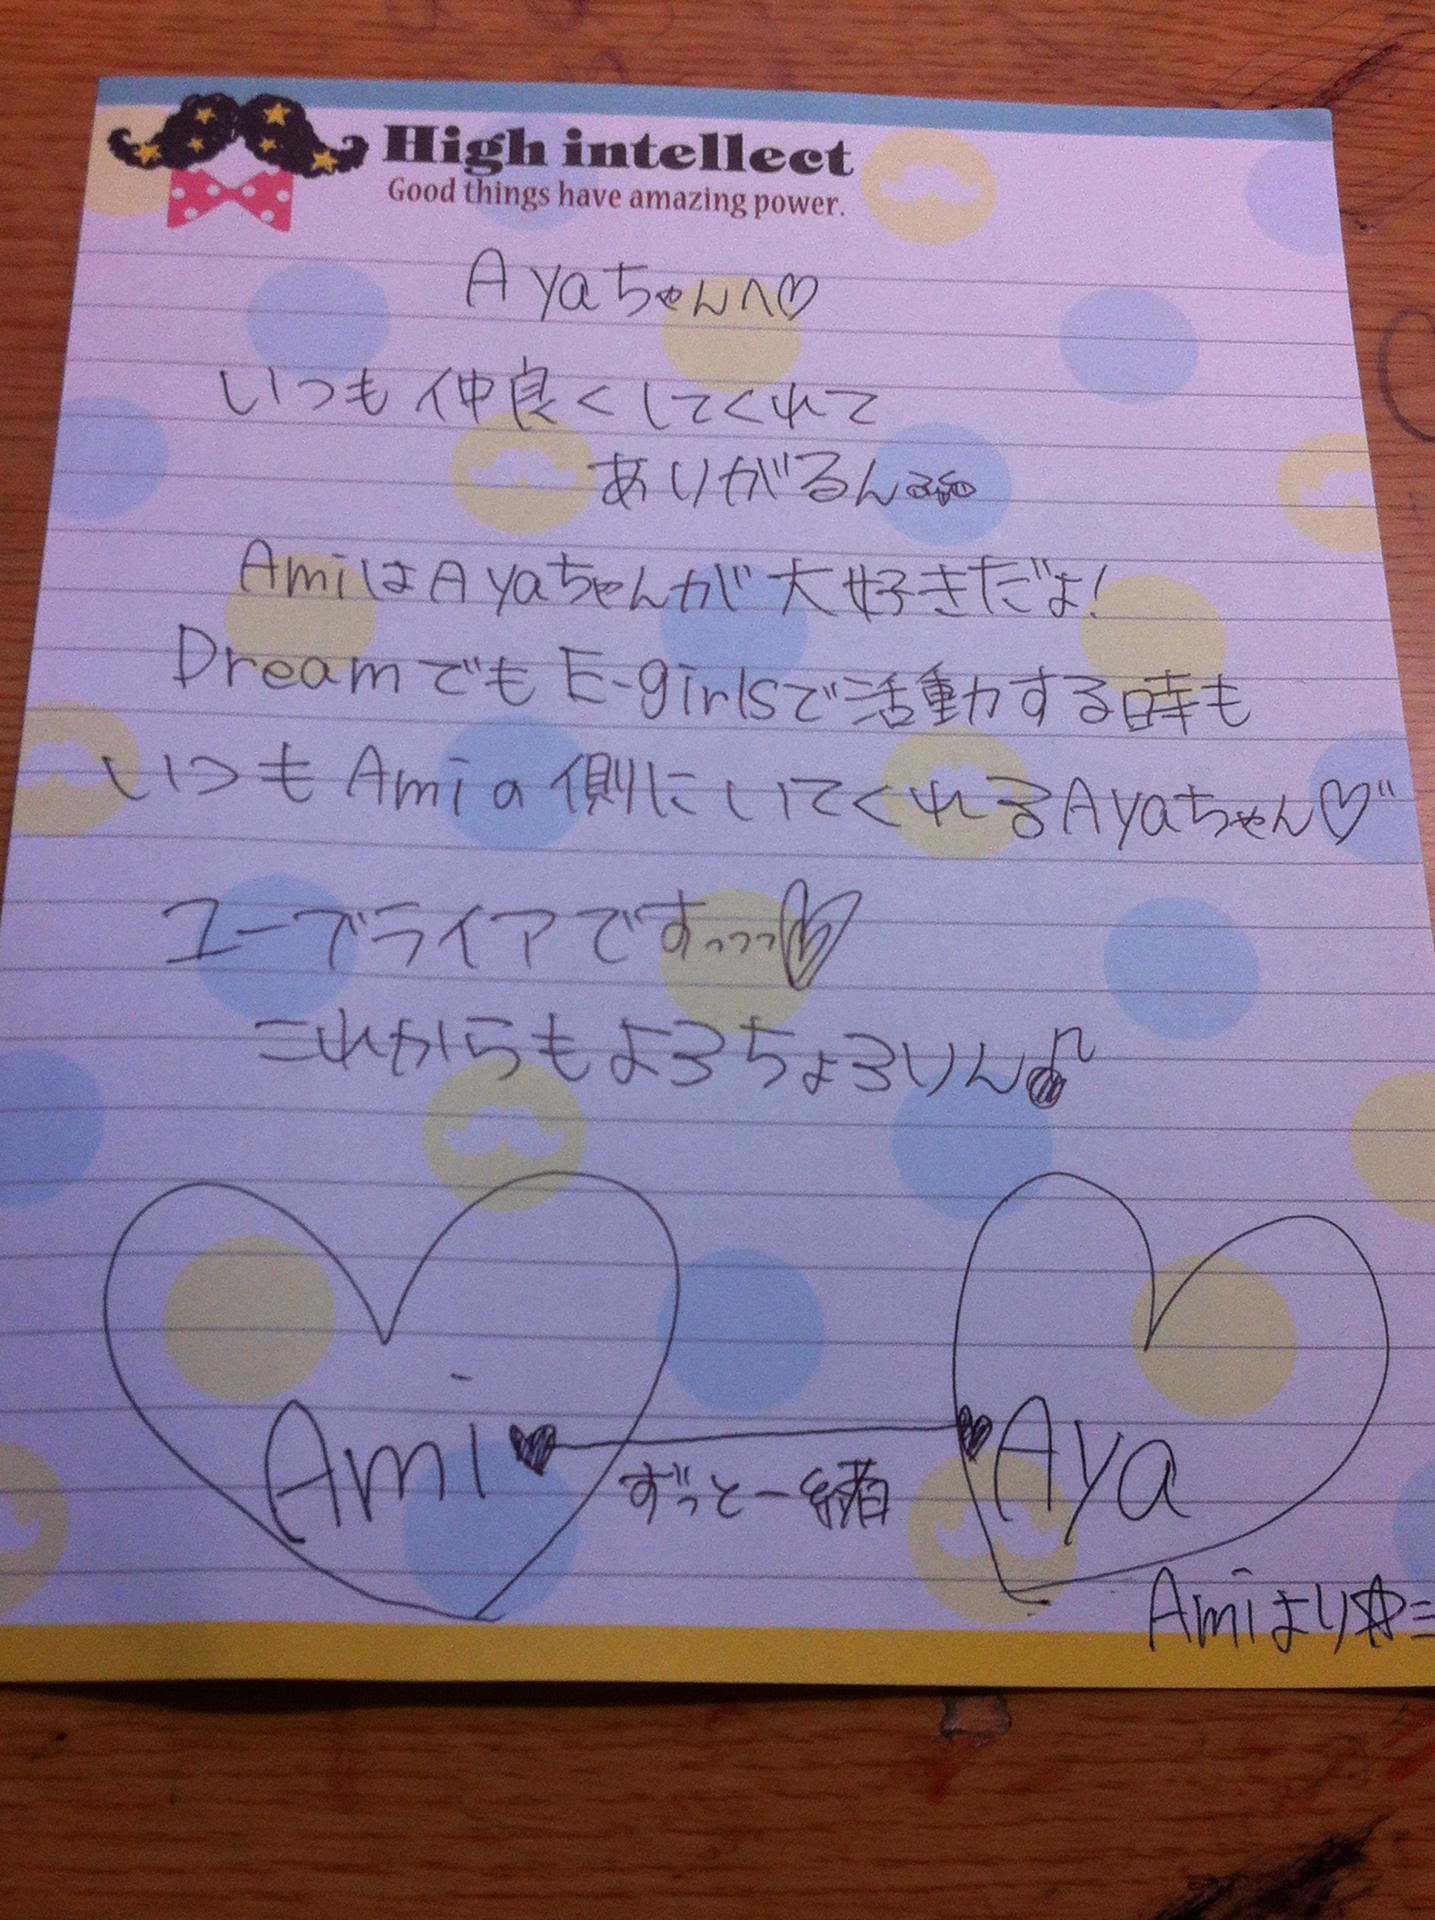 High intellect
Good things have amazing power.
Ayaちゃんへ♡
いつも仲良くしてくれて
ありがるん
AmiはAyaちゃんが大好きだよ!
DreamでもE-girlsで活動する時も
いつもAmiの側にいてくれるAyaちゃん♡"
ユーブライアですっっっ♡
これからもよろちょろりん♪
Ami♥
ずっと一緒
♥Aya
Amiより☆=